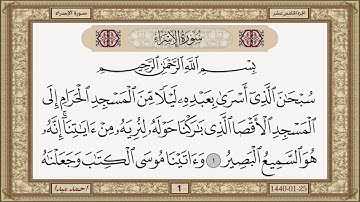 سورة الإسراء
الجزء الخامس عشر
سُورَةُ الْإِسْرَاءِ
بِسْمِ اللَّهِ الرَّحْمَٰنِ الرَّحِيمِ
سُبْحَٰنَ الَّذِي أَسْرَىٰ بِعَبْدِهِ لَيْلًا مِّنَ الْمَسْجِدِ الْحَرَامِ إِلَى
الْمَسْجِدِ الْأَقْصَا الَّذِي بَٰرَكْنَا حَوْلَهُ لِنُرِيَهُ مِنْ ءَايَٰتِنَا ۚ إِنَّهُ
هُوَ السَّمِيعُ الْبَصِيرُ ١ وَءَاتَيْنَا مُوسَى الْكِتَٰبَ وَجَعَلْنَٰهُ
أحماء عبدالله
1
1440-01-25